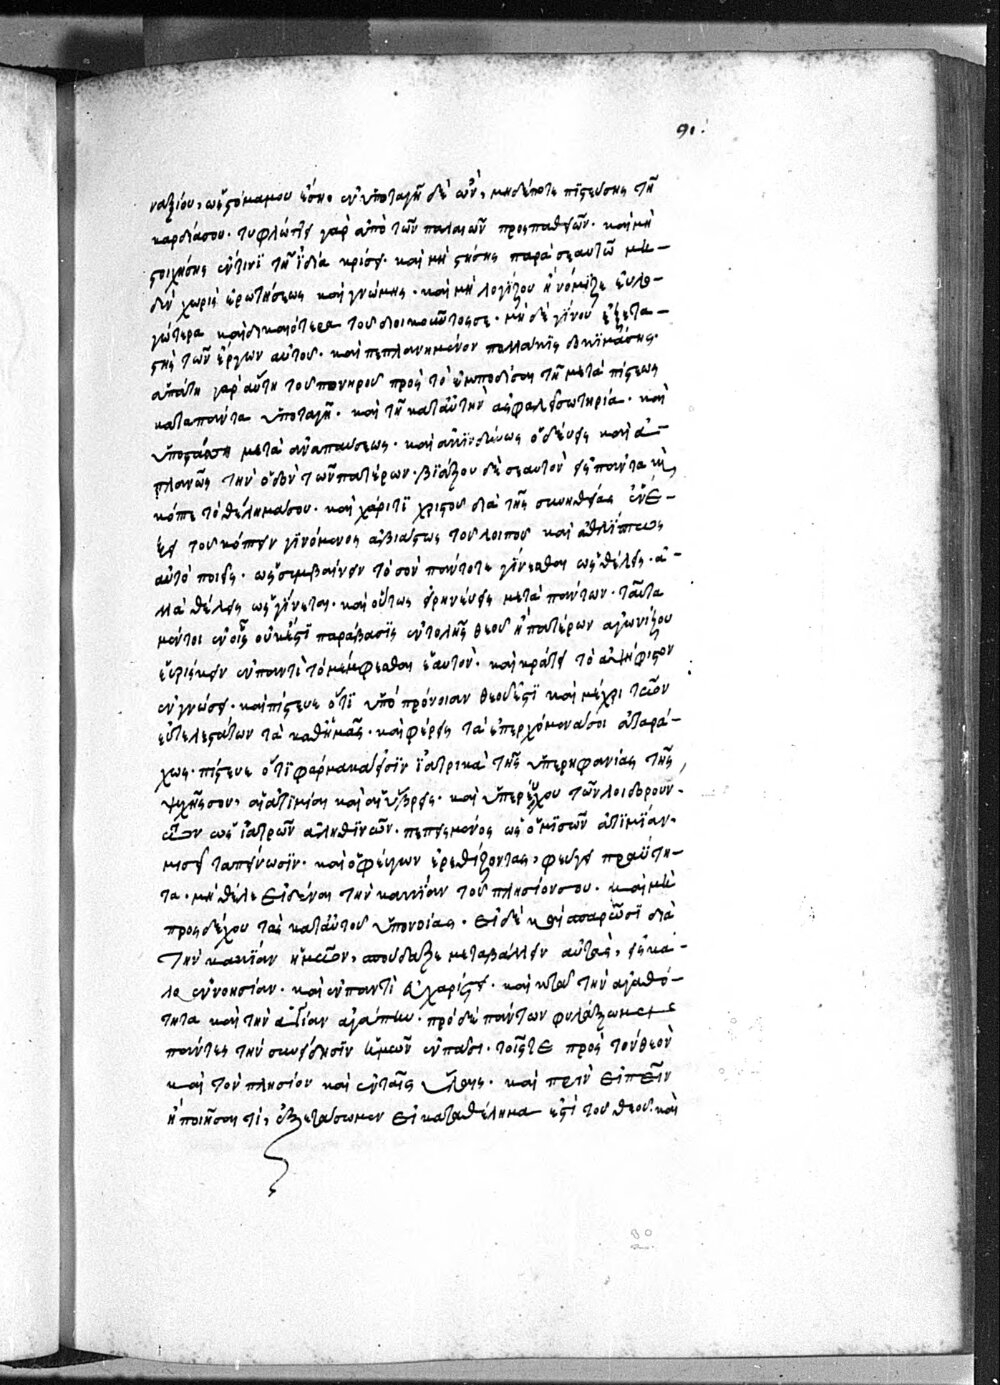 91.
ναξίου, ὡς τὸ μαμου ἔση. ἐν ὑποταγῆ δὲ ὢν, μηδέποτε πιστεύσης τῆ
καρδία σου· τυφλώττει γὰρ ἀπὸ τῶν παλαιῶν προσπαθειῶν· καὶ μὴ
στοιχήσης ἐν τινὶ τῆ ἰδία κρίσει· καὶ μὴ στήσης παρὰ σεαυτῶ μη-
δὲν χωρὶς ἐρωτήσεως καὶ γνώμης· καὶ μὴ λογίζου ἢ νόμιζε εὐλο-
γώτερα καὶ δικαιότερα τοῦ διοικοῦντος σε· μὴ δὲ γίνου ἐξετα-
στὴς τῶν ἔργων αὐτοῦ· καὶ πεπλανημένον πολλάκις δοκιμάσης·
ἀπάτη γὰρ αὕτη τοῦ πονηροῦ πρὸς τὸ ἐμποδίσαι τῆ μετὰ πίστεως
κατὰ πάντα ὑποταγῆ· καὶ τῆ κατ' αὐτὴν ἀσφαλεῖ σωτηρία· καὶ
μετὰ ἀναπαύσεως· καὶ ἀκινδύνως ὁδεύεις καὶ ἀ-
πλανῶς τὴν ὁδὸν τῶν πατέρων· βιάζου δὲ σεαυτὸν εἰς πάντα καὶ
κόπτε τὸ θέλημά σου· καὶ χάριτι χριστοῦ διὰ τῆς συνηθείας ἐν ἕ-
ξει τοῦ κόπτειν γινόμενος ἀβιάστως τοῦ λοιποῦ καὶ ἀθλίπτως
αὐτὸ ποιεῖς· ὡς συμβαίνειν τὸ σὸν πάντοτε γίνεσθαι ὡς θέλεις· ἀ-
λλὰ θέλεις ὡς γίνεται· καὶ οὕτως εἰρηνεύεις μετὰ πάντων· ταῦτα
μέντοι ἐν οἷς οὐκ ἔστι παράβασις ἐντολῆς θεοῦ ἢ πατέρων ἀγωνίζου
εὑρίσκειν ἐν παντὶ τὸ μέμφεσθαι ἑαυτόν· καὶ κράτει τὸ ἀψήφιστον
ἐν γνώσει· καὶ πίστευε ὅτι ὑπὸ πρόνοιαν θεοῦ ἐστὶ καὶ μέχρι τῶν
εὐτελεστάτων τὰ καθ' ἡμᾶς· καὶ φέρεις τὰ ἐπερχόμενά σοι ἀταρά-
χως· πίστευε ὅτι φάρμακα εἰσὶν ἰατρικὰ τῆς ὑπερηφανίας τῆς
ψυχῆς σου, αἱ ἀτιμίαι καὶ αἱ ὕβρεις· καὶ ὑπερεύχου τῶν λοιδορούν-
των ὡς ἰατρῶν ἀληθινῶν· πεπεισμένος ὡς ὁ μισῶν ἀτιμίαν·
μισεῖ ταπείνωσιν· καὶ ὁ φεύγων ἐρεθίζοντας, φεύγει πραΰτη-
τα· μὴ θέλε εἰδέναι τὴν κακίαν τοῦ πλησίον σου· καὶ μὴ
προσδέχου τὰς κατ' αὐτοῦ ὑπονοίας· εἰ δὲ καὶ σπαρῶσι διὰ
τὴν κακίαν ἡμῶν, σπούδαζε μεταβάλλειν αὐτὰς, εἰς κα-
λὴν ἔννοιαν· καὶ ἐν παντὶ εὐχαρίστει· καὶ κτοῦ τὴν ἀγαθό-
τητα καὶ τὴν ἁγίαν ἀγάπην· πρὸ δὲ πάντων φυλάξωμεν
πάντες τὴν συνείδησιν ἡμῶν ἐν πᾶσι· τοῖς τε πρὸς τὸν θεὸν
καὶ τὸν πλησίον καὶ ἐν ταῖς ὕλαις· καὶ πρὶν εἰπεῖν
ἢ ποιῆσαι τί, ἐξετάσωμεν εἰ κατὰ θέλημα ἐστὶ τοῦ θεοῦ· καὶ